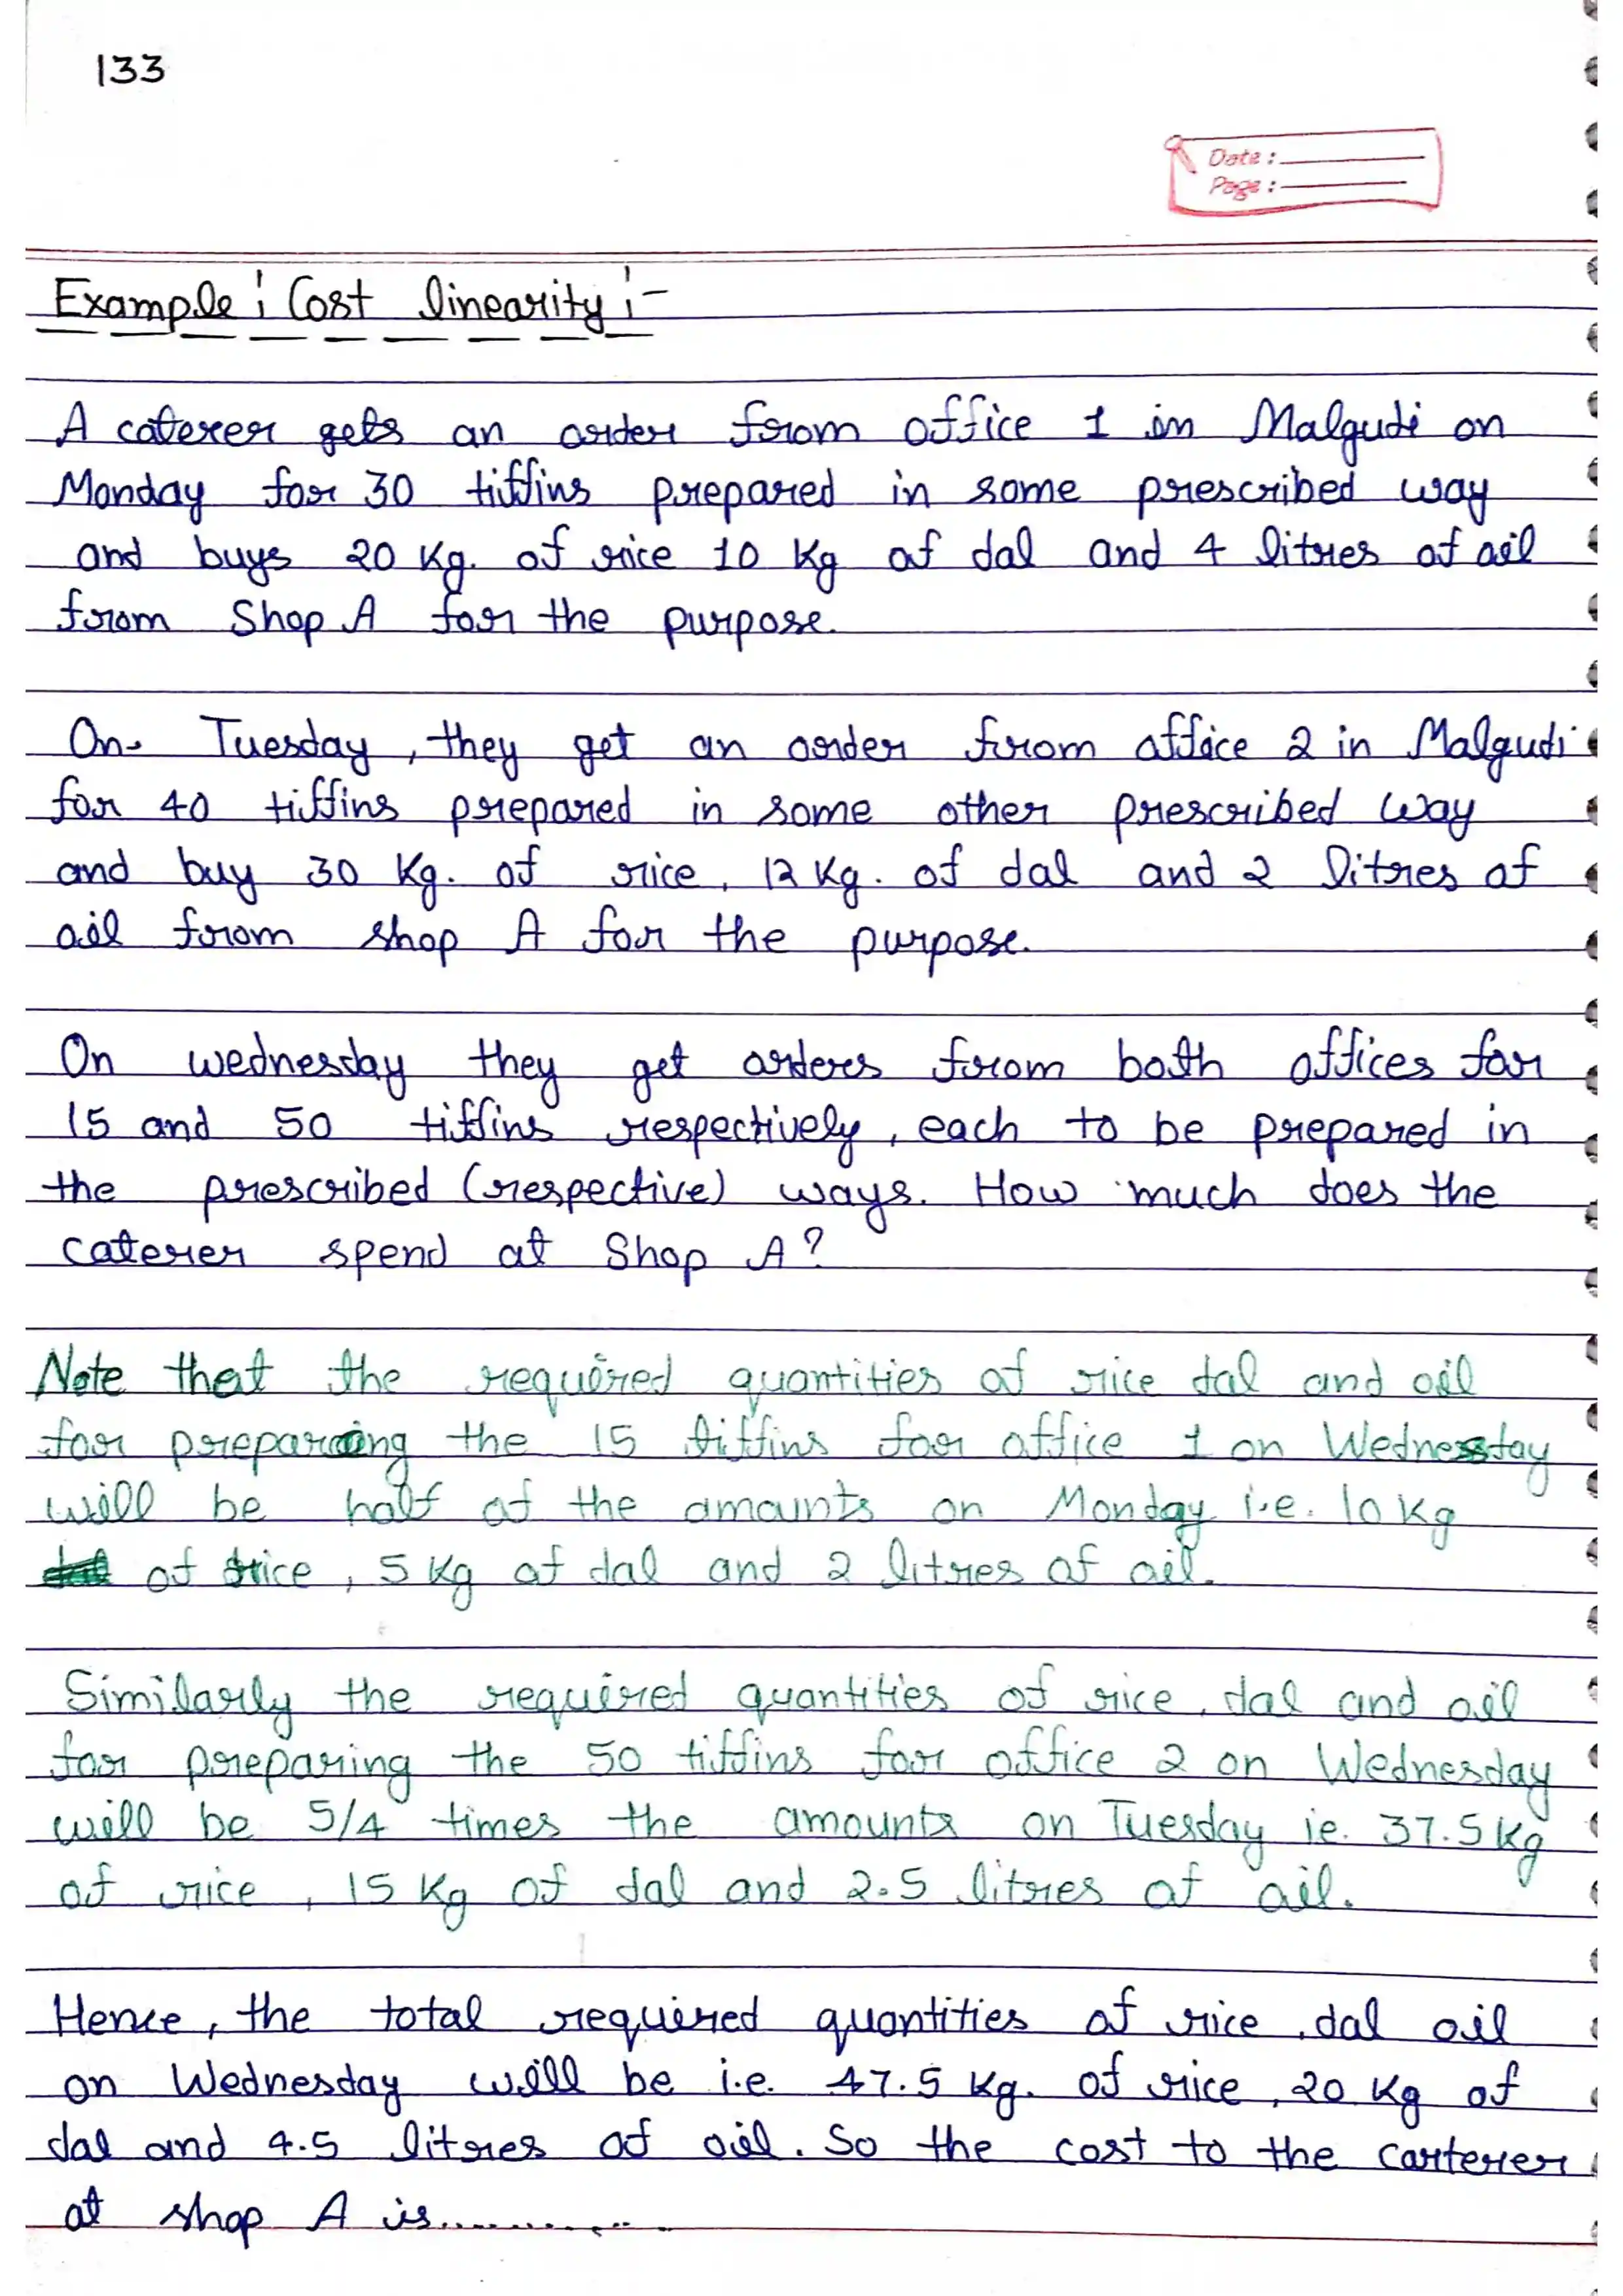 133
Date :
Page :
Example : Cost linearity :-
A caterer gets an order from office 1 in Malgudi on
Monday for 30 tiffins prepared in some prescribed way
and buys 20 Kg. of rice 10 Kg of dal and 4 litres of oil
from Shop A for the purpose.
On Tuesday, they get an order from office 2 in Malgudi
for 40 tiffins prepared in some other prescribed way
and buy 30 Kg. of rice, 12 Kg. of dal and 2 litres of
oil from shop A for the purpose.
On wednesday they get orders from both offices for
15 and 50 tiffins respectively, each to be prepared in
the prescribed (respective) ways. How much does the
caterer spend at Shop A?
Note that the required quantities of rice dal and oil
for preparing the 15 tiffins for office 1 on Wednesday
will be half of the amounts on Monday i.e. 10 Kg
of rice, 5 Kg of dal and 2 litres of oil.
Similarly the required quantities of rice, dal and oil
for preparing the 50 tiffins for office 2 on Wednesday
will be 5/4 times the amounts on Tuesday ie. 37.5 Kg
of rice, 15 Kg of dal and 2.5 litres of oil.
Hence, the total required quantities of rice, dal oil
on Wednesday will be i.e. 47.5 Kg. of rice, 20 Kg of
dal and 4.5 litres of oil. So the cost to the carterer
at shop A is..............